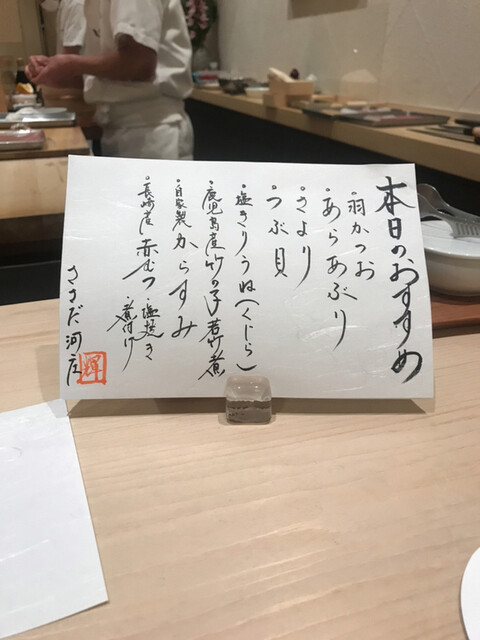 本日のおすすめ
・羽かつお
・あらあぶり
・さより
・つぶ貝
・塩きりうね(くじら)
・鹿児島産竹の子若竹煮
・自家製からすみ
・長崎産赤むつ・塩焼き
煮付け
河庄
輝